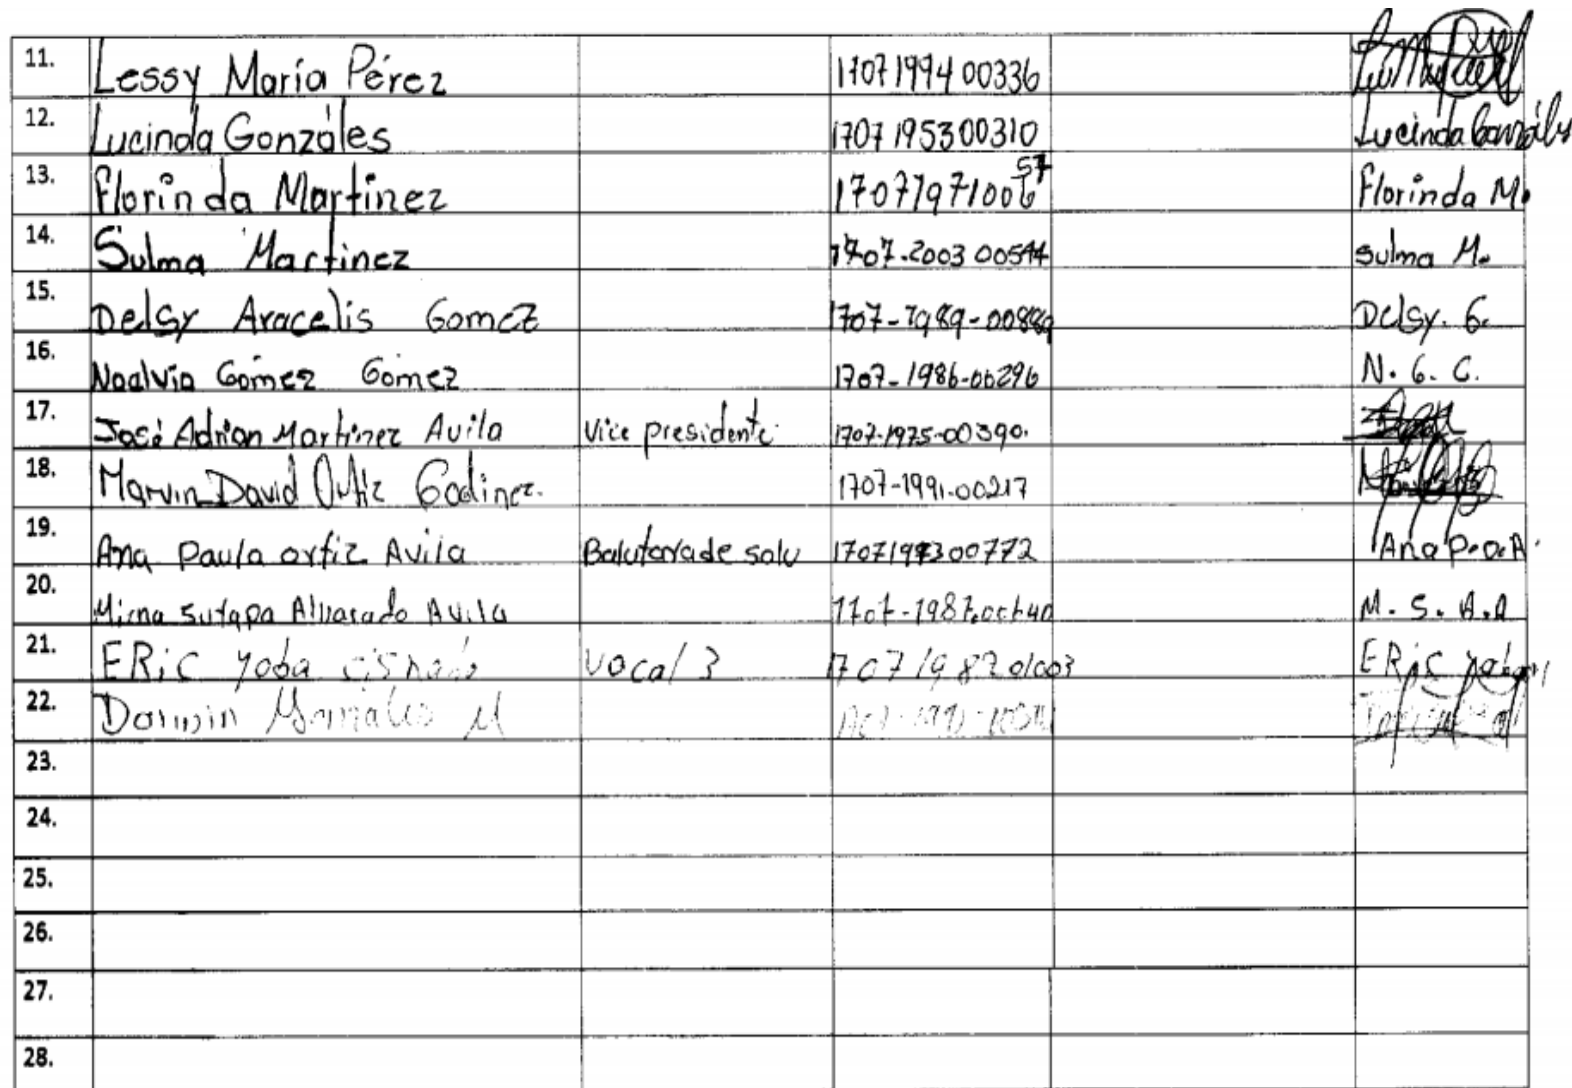 11. Lessy María Pérez 1707 1994 00336
12. Lucinda Gonzáles 1707 1953 00310 Lucinda Gonzáles
13. Florinda Martinez 17071971006 57 Florinda M.
14. Sulma Martinez 1707-2003 00544 Sulma M.
15. Delsy Aracelis Gomez 1707-1989-00889 Delsy. G.
16. Noalvia Gómez Gómez 1707-1986-00296 N. G. C.
17. José Adrian Martinez Avila Vice presidente 1707-1975-00390.
18. Marvin David Ortiz Godinez. 1707-1991-00217
19. Ana Paula ortiz Avila de salu 1707199300772 Ana P.O.A.
20. Mirna Alvarado Avila M. S. A. A
21. ERiC Vocal 3 1707198201003 ERiC
22. M
23.
24.
25.
26.
27.
28.